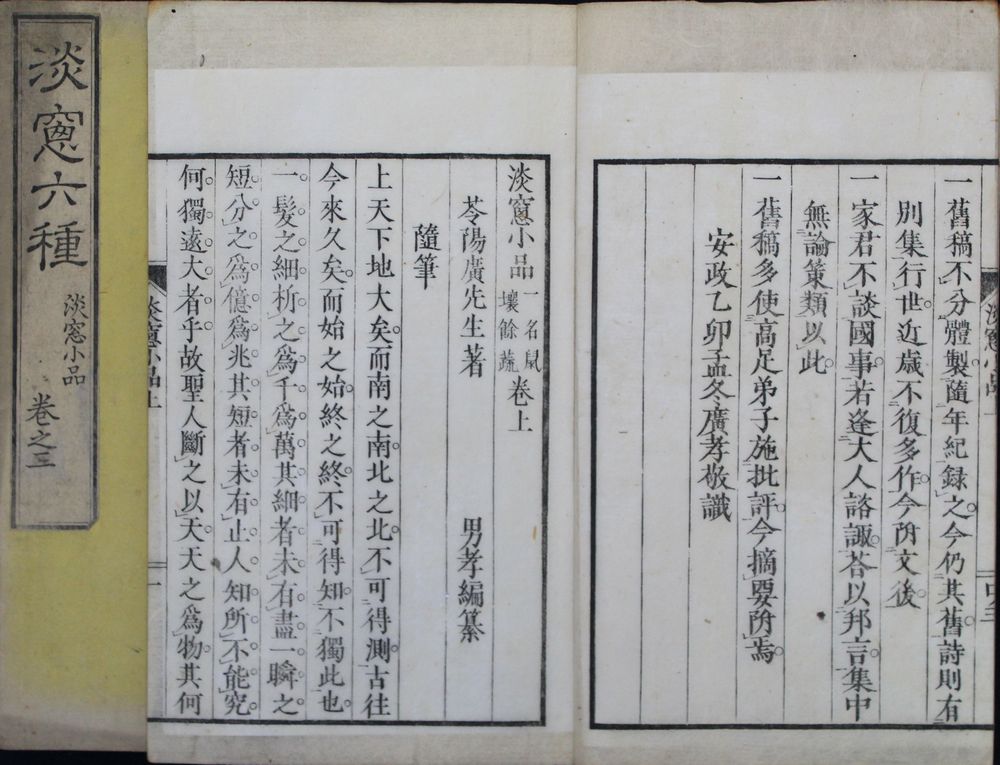 一舊稿不分體製隨年紀録之今仍其舊詩則有
別集行世近歳不復多作今附文後
一家君不談國事若逢大人諮諏荅以邦言集中
無論策類以此
一舊稿多使高足弟子施批評今摘要附焉
安政乙卯孟冬廣孝敬識
淡窻小品一名鼠壤餘蔬卷上
苓陽廣先生著　男孝編纂
隨筆
上天下地大矣而南之南北之北不可得測古往
今來久矣而始之始終之終不可得知不獨此也
一髮之細析之爲千爲萬其細者未有盡一瞬之
短分之爲億爲兆其短者未有止人知所不能究
何獨遠大者乎故聖人斷之以天天之爲物其何
淡窻小品上
一
淡窻六種
淡窓小品
卷之三